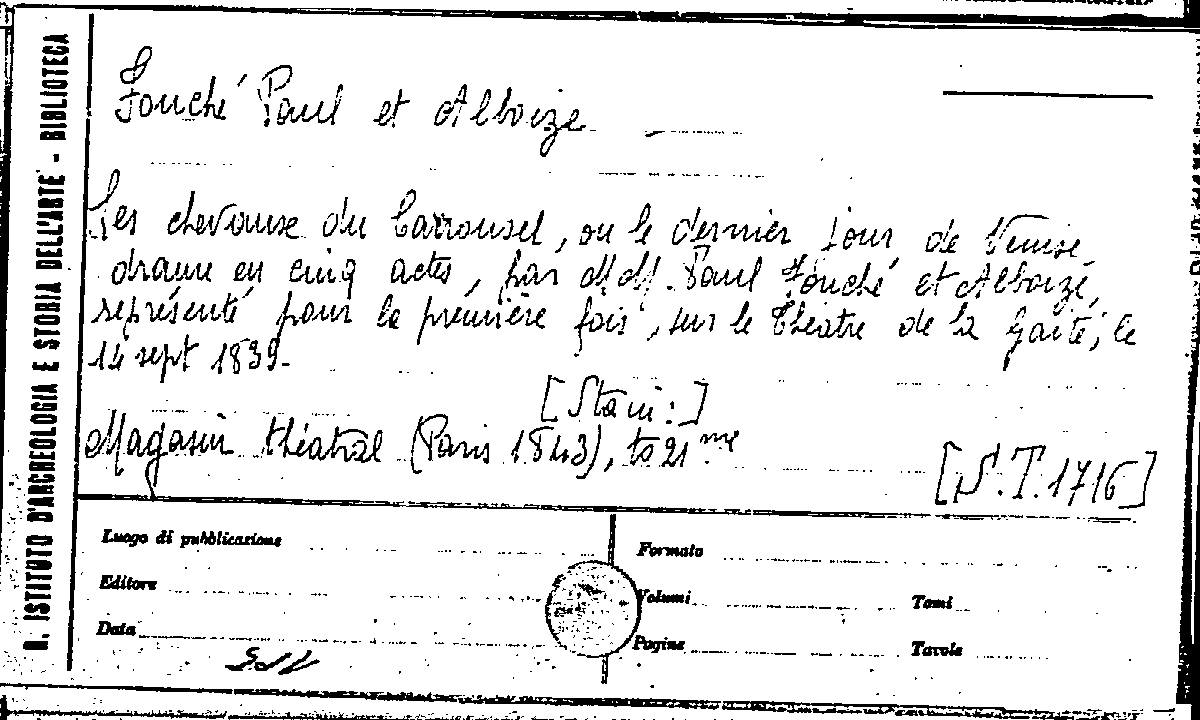 R. ISTITUTO D'ARCHEOLOGIA E STORIA DELL'ARTE - BIBLIOTECA
Fouché Paul et Alboize
Les chevaux du Carrousel, ou le dernier jour de Venise,
drame en cinq actes, par MM. Paul Fouché et Alboize,
représenté pour la première fois, sur le théatre de la Gaité, le
14 sept 1839.
[Stam:]
Magasin théatral (Paris 1843), to 21me
[S.T.1716]
Luogo di pubblicazione
Formato
Editore
Volumi
Tomi
Data
Pagine
Tavole